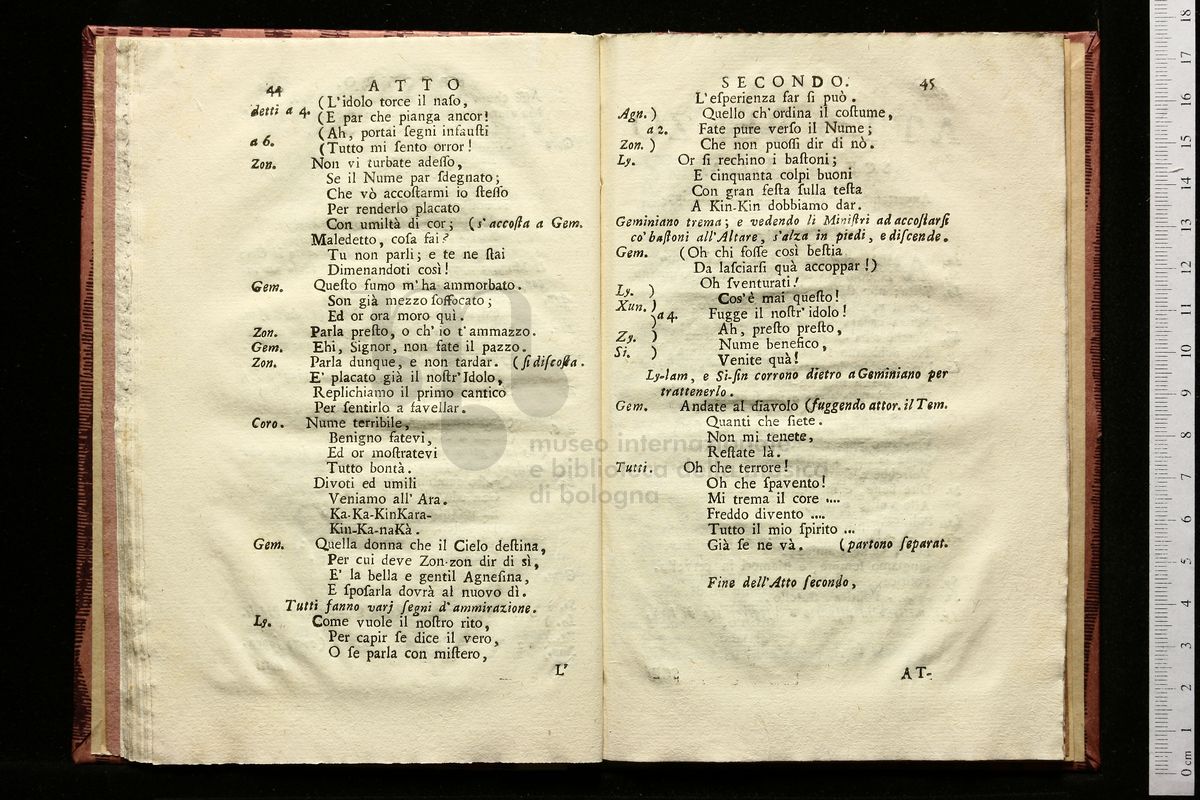 44 ATTO
detti a 4. (L'idolo torce il naſo,
(E par che pianga ancor!
(Ah, portai ſegni infauſti
a 6. (Tutto mi ſento orror!
Zon. Non vi turbate adeſſo,
Se il Nume par ſdegnato;
Che vò accoſtarmi io ſteſſo
Per renderlo placato
Con umiltà di cor; (s'accoſta a Gem.
Maledetto, coſa fai?
Tu non parli; e te ne ſtai
Dimenandoti così!
Gem. Queſto fumo m'ha ammorbato.
Son già mezzo ſoffocato;
Ed or ora moro qui.
Zon. Parla preſto, o ch'io t'ammazzo.
Gem. Ehi, Signor, non fate il pazzo.
Zon. Parla dunque, e non tardar. (ſi diſcoſta.
E' placato già il noſtr'Idolo,
Replichiamo il primo cantico
Per ſentirlo a favellar.
Coro. Nume terribile,
Benigno fatevi,
Ed or moſtratevi
Tutto bontà.
Divoti ed umili
Veniamo all'Ara.
Ka-Ka-KinKara-
Kin-Ka-naKà.
Gem. Quella donna che il Cielo deſtina,
Per cui deve Zon-zon dir di sì,
E' la bella e gentil Agneſina,
E ſpoſarla dovrà al nuovo dì.
Tutti fanno varj ſegni d'ammirazione.
Ly. Come vuole il noſtro rito,
Per capir ſe dice il vero,
O ſe parla con miſtero,
L'
SECONDO. 45
L'eſperienza far ſi può.
Agn. ) Quello ch'ordina il coſtume,
a 2. Fate pure verſo il Nume;
Zon. ) Che non puoſſi dir di nò.
Ly. Or ſi rechino i baſtoni;
E cinquanta colpi buoni
Con gran feſta ſulla teſta
A Kin-Kin dobbiamo dar.
Geminiano trema; e vedendo li Miniſtri ad accoſtarſi
co' baſtoni all'Altare, s'alza in piedi, e diſcende.
Gem. (Oh chi foſſe così beſtia
Da laſciarſi quà accoppar!)
Oh ſventurati!
Ly. ) Cos'è mai queſto!
Xun. ) Fugge il noſtr'idolo!
) a 4. Ah, preſto preſto,
Zy. ) Nume benefico,
Si. ) Venite quà!
Ly-lam, e Si-ſin corrono dietro a Geminiano per
trattenerlo.
Gem. Andate al diavolo (fuggendo attor. il Tem.
Quanti che ſiete.
Non mi tenete,
Reſtate là.
Tutti. Oh che terrore!
Oh che ſpavento!
Mi trema il core ....
Freddo divento ....
Tutto il mio ſpirito ...
Già ſe ne và. (partono ſeparat.
Fine dell'Atto ſecondo,
AT-
museo internazionale
e biblioteca della musica
di bologna
0 cm 1 2 3 4 5 6 7 8 9 10 11 12 13 14 15 16 17 18